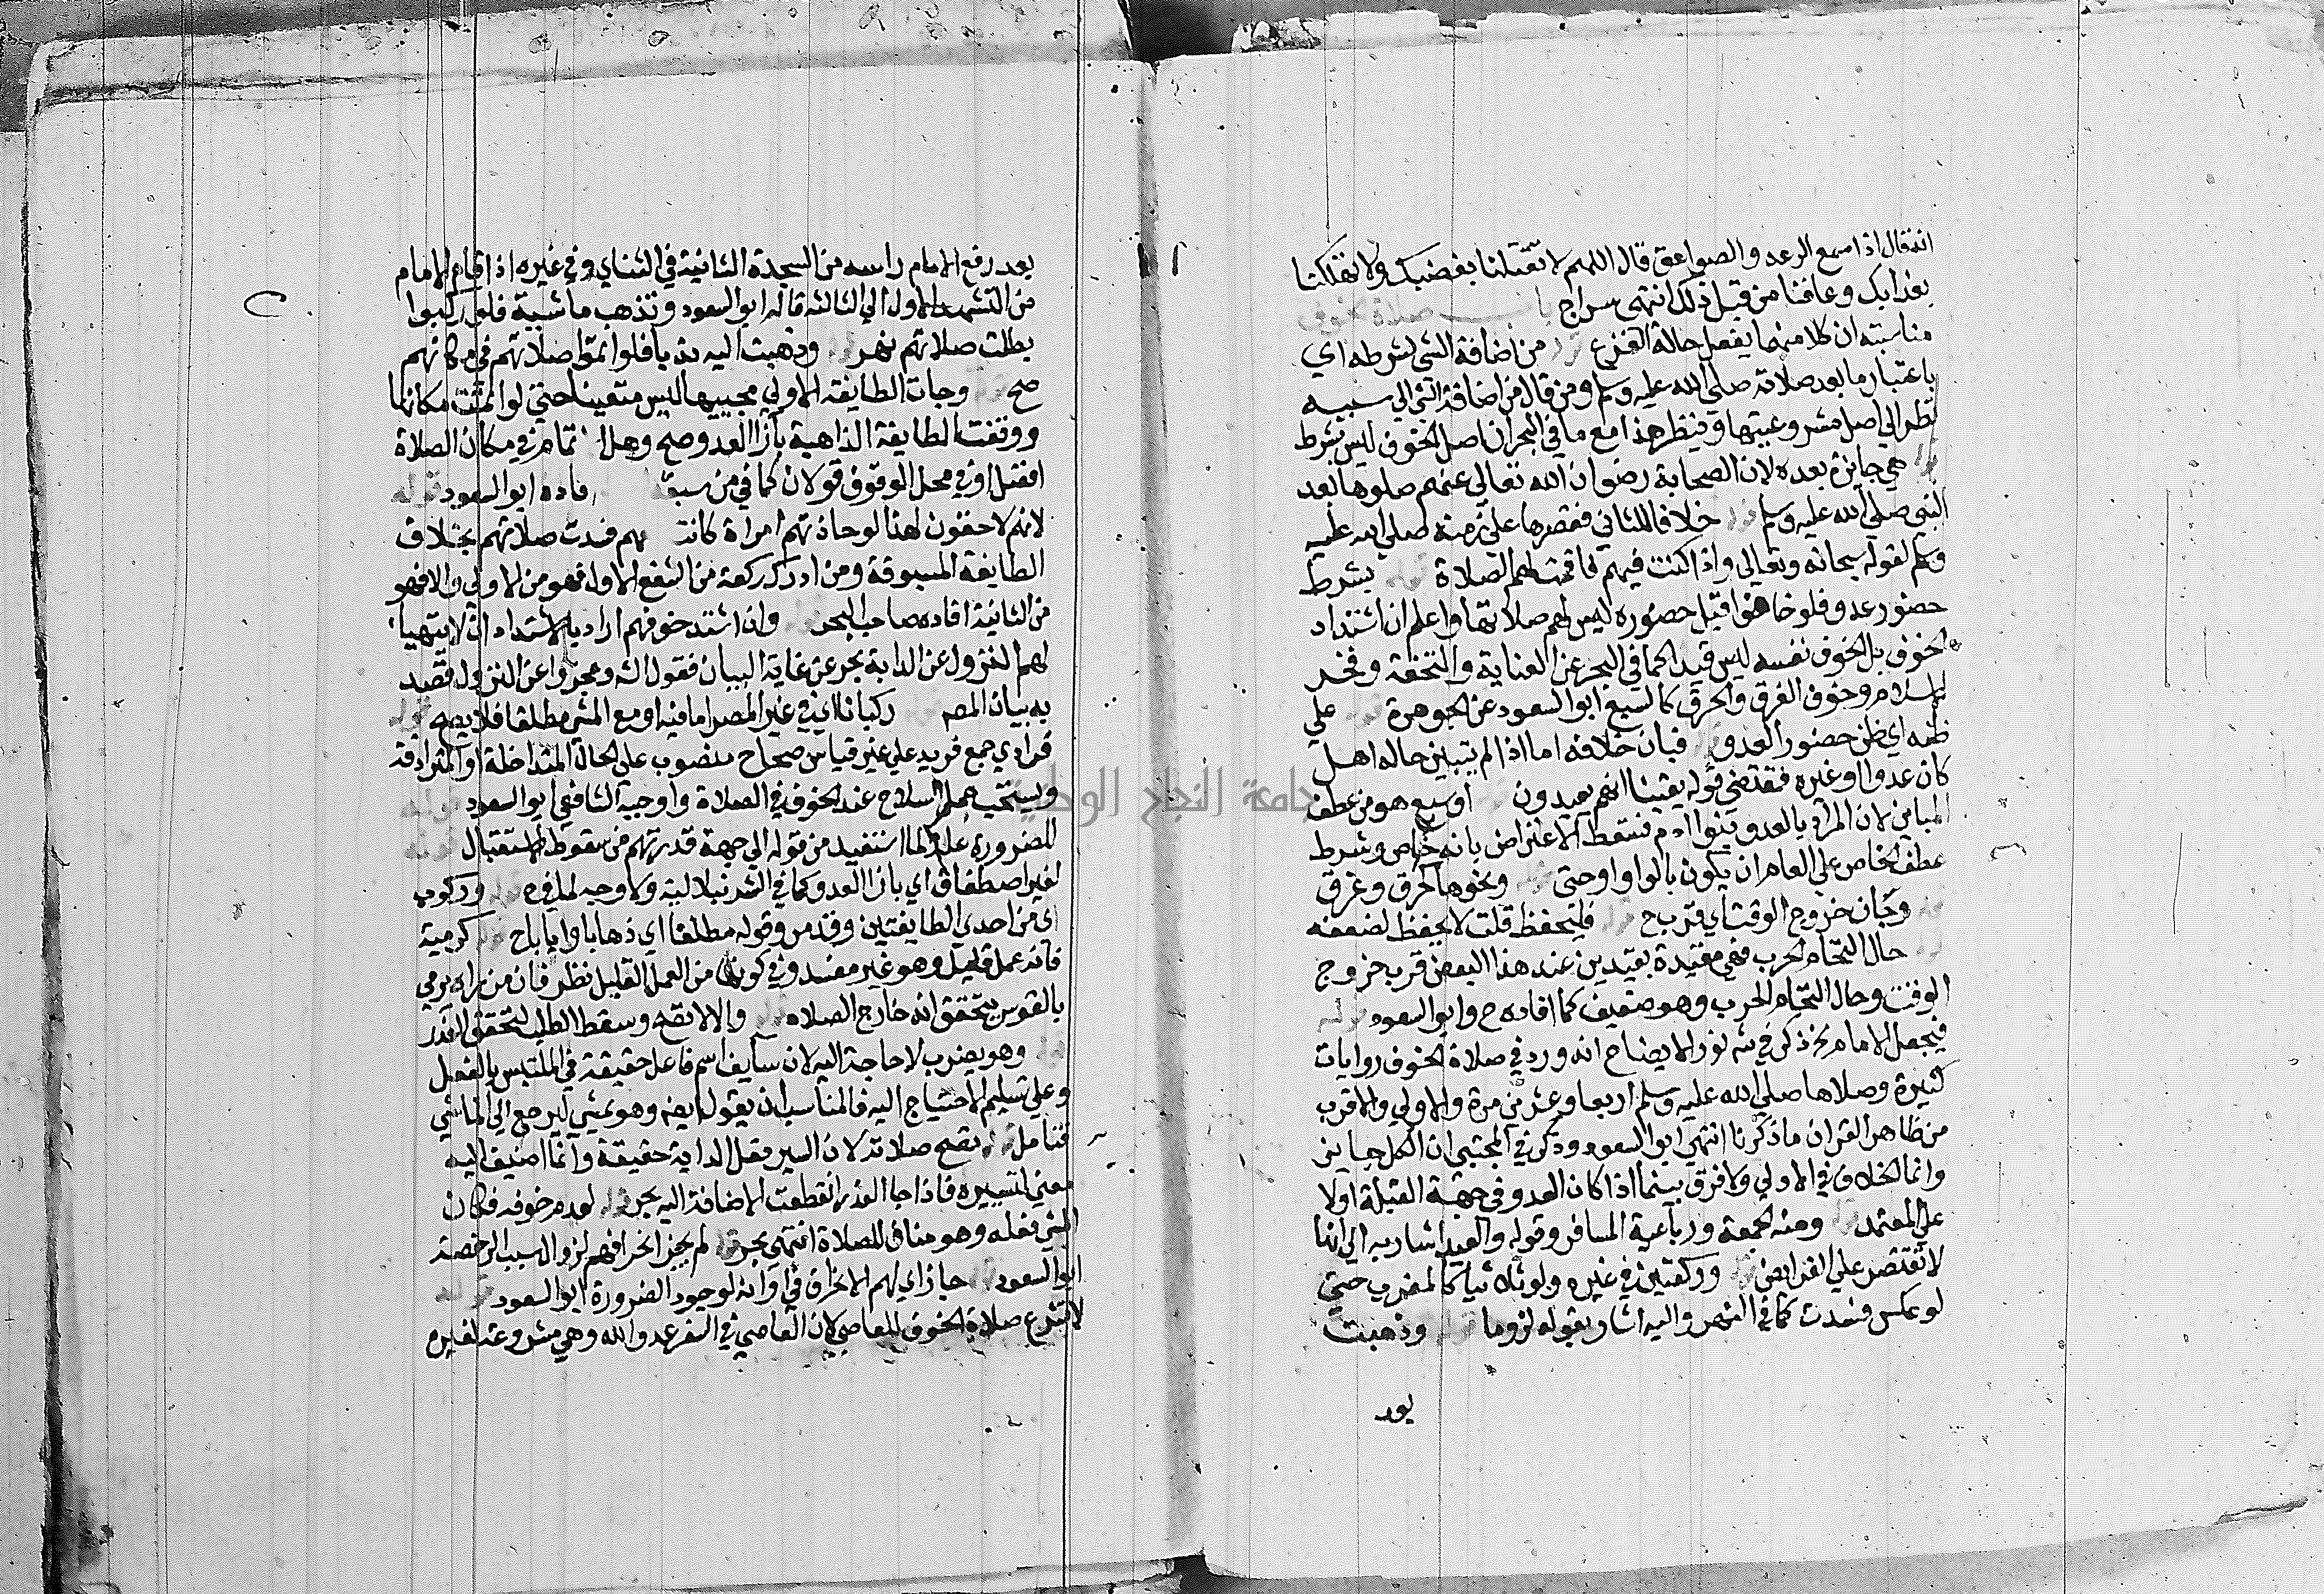 انتقال اذا سمع الرعد والصواعق قال اللهم لا تقتلنا بغضبك ولا تهلكنا
بعذابك وعافنا من قبل ذلك انتهى سراج باب صلاة الخوف
مناسبته ان كلا منهما يفعل حالة الفزع قوله من اضافة الشي لشرطه اي
باعتبار ما بعد صلاته صلى الله عليه وسلم ومن قال من اضافة الشي الى سببه
نظر الى اصل مشروعيتها وينظر هذا مع ما في البحر ان اصل الخوف ليس بشرط
قوله هي جايزة بعده لان الصحابة رضوان الله تعالى عنهم صلوها بعد
النبي صلى الله عليه وسلم قوله خلافا للثاني فقصرها على زمنه صلى الله عليه
وسلم لقوله سبحانه وتعالى واذا كنت فيهم فاقمت لهم الصلاة قوله بشرط
حضور عدو فلو خافوا قبل حضوره ليس لهم صلاتها واعلم ان اشتداد
الخوف بل الخوف نفسه ليس قيدا كما في البحر عن العناية والتحفة وفخر
الاسلام وخوف الغرق والحرق كالسبع ابو السعود عن الجوهرة قوله على
ظنه اي ظن حضور العدو قوله فبان خلافه اما اذا لم يتبين حاله اهل
كان عدوا او غيره فمقتضى قوله يقينا انهم يعيدون قوله او سبع هو من عطف
المباين لان المراد بالعدو بنوا ادم فسقط الاعتراض بانه خاص وشرط
عطف الخاص على العام ان يكون بالواو او حتى قوله ونحوها كحرق وغرق
قوله وحان خروج الوقت اي قرب ح قوله فليحفظ قلت لا يحفظ لضعفه
قوله حال التحام الحرب فهي مقيدة بقيدين عند هذا البعض قرب خروج
الوقت وحال التحام الحرب وهو ضعيف كما افاده ح وابو السعود قوله
فيجعل الامام الخ ذكر في شه نور الايضاح انه ورد في صلاة الخوف روايات
كثيرة وصلاها صلى الله عليه وسلم اربعا وعشرين مرة والاولى والاقرب
من ظاهر القران ما ذكرنا انتهى ابو السعود وذكر في المجتبى ان الكل جايز
وانما الخلاف في الاولى ولا فرق بينما اذا كان العدو في جهة القبلة اولا
على المعتمد قوله ومنه الجمعة ورباعية المسافر وقوله والعيد اشار به الى انها
لا تقتصر على الفرايض قوله وركعتين في غيره ولو ثلاثيا كالمغرب حتى
لو عكس فسدت كما في النهر واليه اشار بقوله لزوما قوله وذهبت
يعد
بعد رفع الامام راسه من السجدة الثانية في الثناي وفي غيره اذا قام الامام
من التشهد الاول الى الثالثة قاله ابو السعود وتذهب ماشية فلو ركبوا
بطلت صلاتهم نهر قوله وذهبت اليه ندبا فلو اتموا صلاتهم في مكانهم
صح قوله وجات الطايفة الاولى مجييها ليس متعينا حتى لو اتمت مكانها
ووقفت الطايفة الذاهبة بازا العدو صح وهل الاتمام في مكان الصلاة
افضل او في محل الوقوف قولان كما في من سبقه افاده ابو السعود قوله
لانهم لاحقون لهذا لو حاذتهم امراة كانت بهم فسدت صلاتهم بخلاف
الطايفة المسبوقة ومن ادرك ركعة من الشفع الاول فهو من الاولى والا فهو
من الثانية افاده صاحب البحر قوله وان اشتد خوفهم اراد بالاشتداد ان لا يتهيا
لهم النزول عن الدابة بحر عن غاية البيان فقول الشه وعجزوا عن النزول قصد
به بيان المص قوله ركبانا اي في غير المصر اما فيه او مع المشي مطلقا فلا يصح قوله
فرادى جمع فريد على غير قياس صحاح منصوب على الحال المتداخلة او المترادفة
ويستحب حمل السلاح عند الخوف في الصلاة واوجبه الشافعي ابو السعود قوله
للضرورة علة لما استفيد من قوله الى جهة قدرتهم من سقوط الاستقبال قوله
لغير اصطفاف اي بازا العدو كما في الشرنبلالية ولا وجه لحذفه قوله وركوب
اي من احدى الطايفتين وقد مر وقوله مطلقا اي ذهابا وايابا ح قوله كرمية
فانه عمل قليل وهو غير مفسد وفي كونه من العمل القليل نظر فان من يراه يرمي
بالقوس يتحقق انه خارج الصلاه قوله والا لا تصح وسقط الطلب لتحقق العذر
قوله وهو يضرب لا حاجة اليه لان سايف اسم فاعل حقيقة في الملتبس بالفعل
وعلى تسليم الاحتياج اليه فالمناسب ان يقول ايضه وهو يمشي ليرجع الى الماشي
فتامل قوله تصح صلاته لان السير فعل الدابة حقيقة وانما اضيف اليه
معنى لتسييره فاذا جا العذر انقطعت الاضافة اليه بحر قوله لعدم خوفه فكان
المشي فعله وهو مناف للصلاة انتهى بحر قوله لم يجز انحرافهم لزوال سبب الرخصة
ابو السعود قوله جاز اي لهم الانحراف في اوانه لوجود الضرورة ابو السعود قوله
لا تشرع صلاة الخوف للعاصي لان العاصي في السفر عدو الله وهي مشروعة لغيره
جامعة النجاح الوطنية